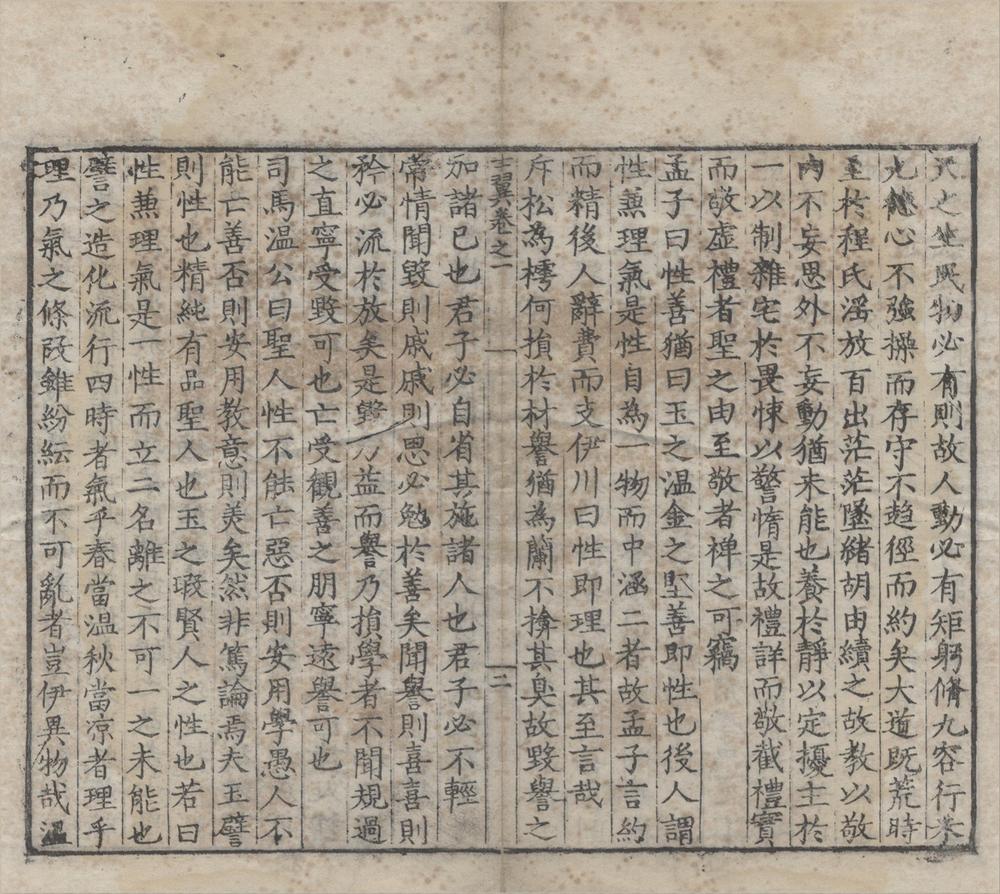 天之生民物必有則故人動必有矩躬脩九容行李
九德心不強操而存守不趋徑而約矣大道既荒時
至於程氏滛放百出茫茫墜緒胡由續之故教以敬
内不妄思外不妄動猶未能也養於靜以定擾主於
一以制雜宅於畏悚以警惰是故禮詳而敬截禮實
而敬虚禮者聖之由至敬者禅之可竊
孟子曰性善猶曰玉之温金之堅善即性也後人謂
性蕪理氣是性自為一物而中涵二者故孟子言約
而精後人辭費而支伊川曰性即理也其至言哉
斥松為樗何損於材譽猶為蘭不揜其臭故毀譽之
言翼卷之一 二
加諸已也君子必自省其施諸人也君子必不輕
常情聞毀則戚戚則思必勉於善矣聞譽則喜喜則
矜必流於放矣是毀乃益而譽乃損學者不聞規過
之直寧受毀可也亡受觀善之朋寧遠譽可也
司馬温公曰聖人性不能亡惡否則安用學愚人不
能亡善否則安用教意則美矣然非篤論焉夫玉譬
則性也精純有品聖人也玉之瑕賢人之性也若曰
性蕪理氣是一性而立二名離之不可一之未能也
譬之造化流行四時者氣乎春當温秋當凉者理乎
理乃氣之條叚雖紛紜而不可亂者豈伊異物哉温